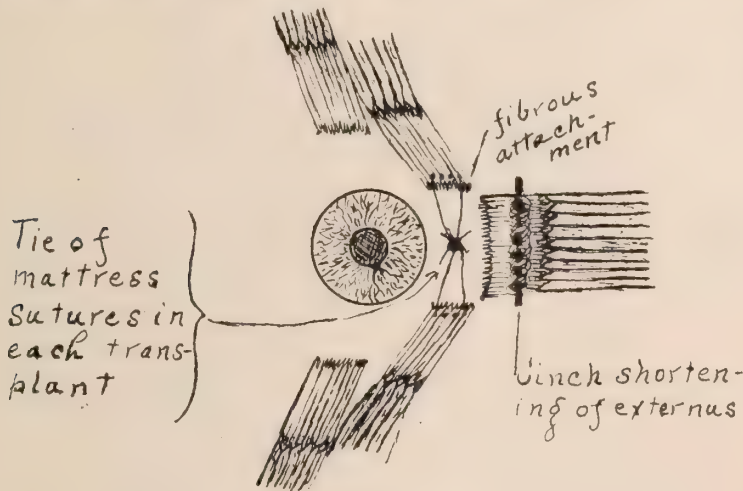 fibrous
attach-
ment
Tie of
mattress
Sutures in
each trans-
plant
Cinch shorten-
ing of externus